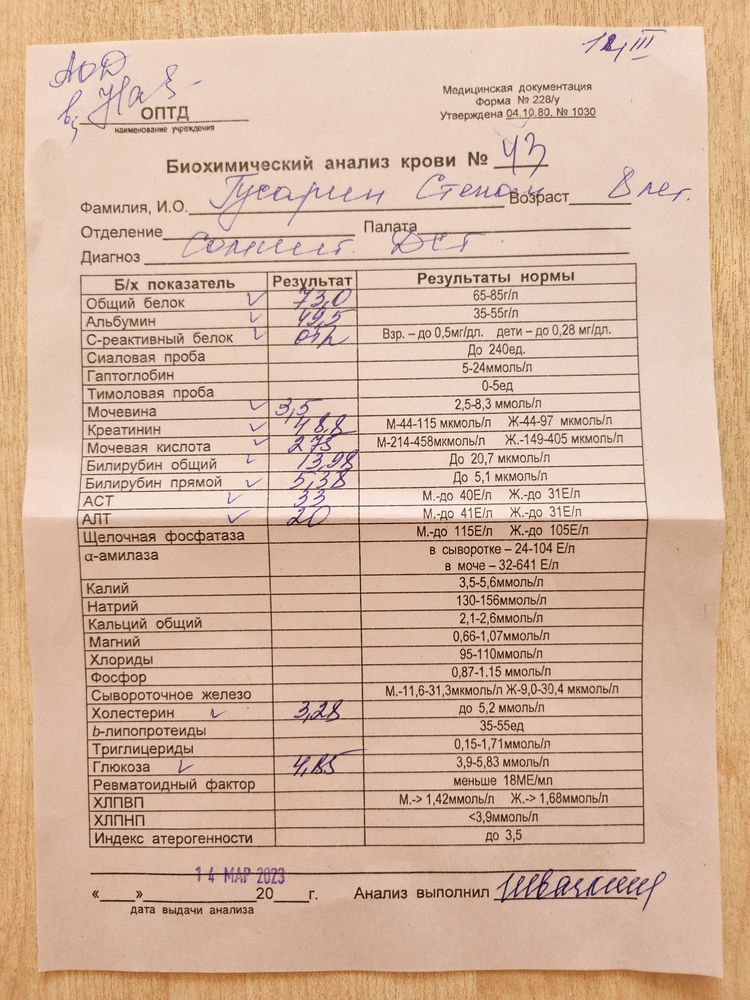 АОД
III
ОПТД
наименование учреждения
Медицинская документация
Форма № 228/у
Утверждена 04.10.80. № 1030
Биохимический анализ крови № 43
Фамилия, И.О. Гусарин Степан Возраст 8 лет.
Отделение Палата
Диагноз
Б/х показатель Результат Результаты нормы
Общий белок 73,0 65-85г/л
Альбумин 49,5 35-55г/л
С-реактивный белок отр Взр. – до 0,5мг/дл. дети – до 0,28 мг/дл.
Сиаловая проба До 240ед.
Гаптоглобин 5-24ммоль/л
Тимоловая проба 0-5ед
Мочевина 3,5 2,5-8,3 ммоль/л
Креатинин 48,8 М-44-115 мкмоль/л Ж-44-97 мкмоль/л
Мочевая кислота 275 М-214-458мкмоль/л Ж.-149-405 мкмоль/л
Билирубин общий 13,98 До 20,7 мкмоль/л
Билирубин прямой 5,38 До 5,1 мкмоль/л
АСТ 33 М.-до 40Е/л Ж.-до 31Е/л
АЛТ 20 М.-до 41Е/л Ж.-до 31Е/л
Щелочная фосфатаза М.-до 115Е/л Ж.-до 105Е/л
α-амилаза в сыворотке – 24-104 Е/л
в моче – 32-641 Е/л
Калий 3,5-5,6ммоль/л
Натрий 130-156ммоль/л
Кальций общий 2,1-2,6ммоль/л
Магний 0,66-1,07ммоль/л
Хлориды 95-110ммоль/л
Фосфор 0,87-1.15 ммоль/л
Сывороточное железо М.-11,6-31,3мкмоль/л Ж-9,0-30,4 мкмоль/л
Холестерин 3,28 до 5,2 ммоль/л
b-липопротеиды 35-55ед
Триглицериды 0,15-1,71ммоль/л
Глюкоза 4,85 3,9-5,83 ммоль/л
Ревматоидный фактор меньше 18МЕ/мл
ХЛПВП М.-> 1,42ммоль/л Ж.-> 1,68ммоль/л
ХЛПНП <3,9ммоль/л
Индекс атерогенности до 3,5
14 МАР 2023
«___»____________20___г. Анализ выполнил
дата выдачи анализа